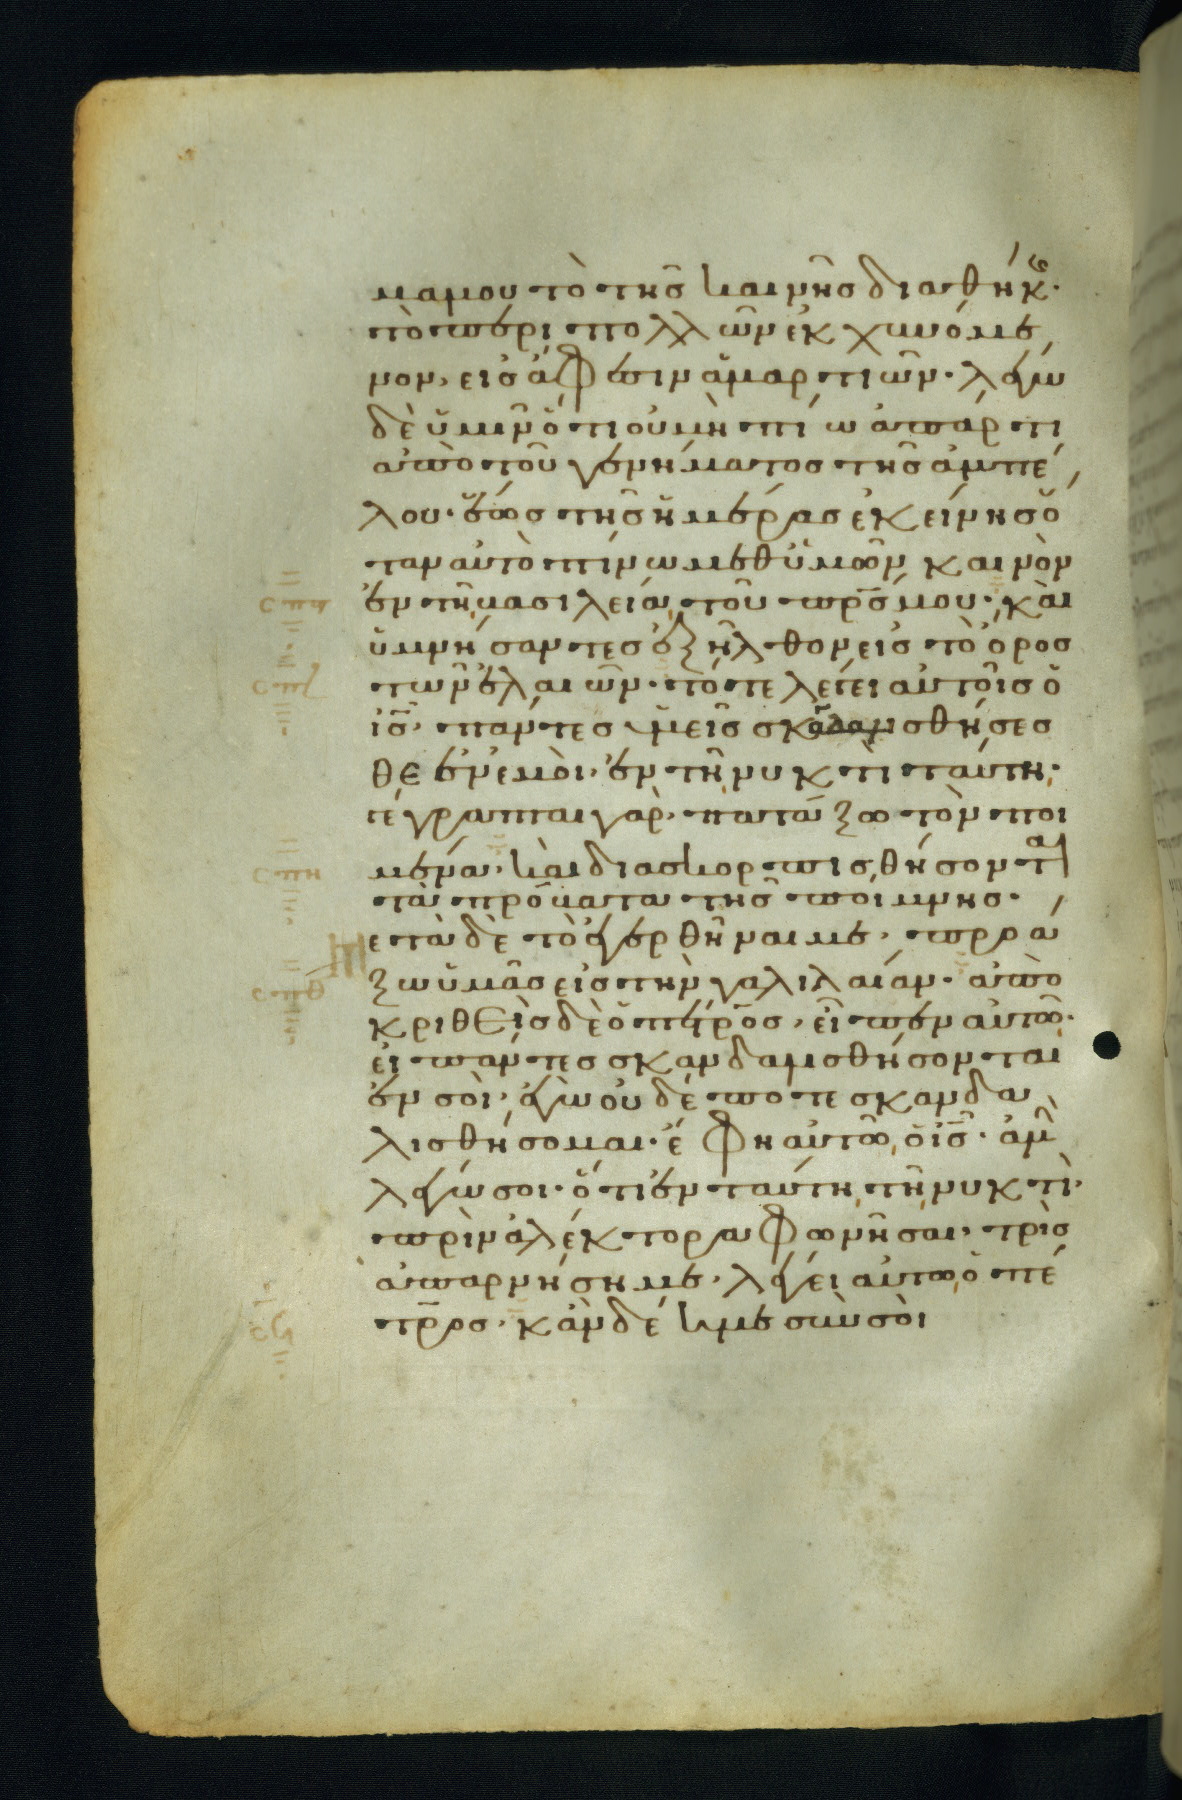 μα μου τὸ τῆς καινῆς διαθήκης·
τὸ περὶ πολλῶν ἐκχυνόμε
νον, εἰς ἄφεσιν ἁμαρτιῶν· λέγω
δὲ ὑμῖν ὅτι οὐ μὴ πίω ἀπάρτι
ἀπὸ τοῦ γενήματος τῆς ἀμπέ
λου· ἕως τῆς ἡμέρας ἐκείνης ὅ
ταν αὐτὸ πίνω μεθ ὑμῶν καινὸν
ἐν τῇ βασιλείᾳ τοῦ πρ̅ς μου· καὶ
ὑμνήσαντες ἐξῆλθον εἰς τὸ ὄρος
τῶν ἐλαιῶν· τότε λέγει αὐτοῖς ὁ
ι̅ς· πάντες ὑμεῖς σκανδαλισθήσεσ
θε ἐν ἐμοὶ· ἐν τῇ νυκτὶ ταύτη·
γέγραπται γὰρ· πατάξω τὸν ποι
μένα· καὶ διασκορπισθήσονται
τὰ πρόβατα τῆς ποίμνης·
Μετὰ δὲ τὸ ἐγερθῆναι με· προά
ξω ὑμᾶς εἰς τὴν γαλιλαίαν· ἀπο
κριθεὶς δὲ ὁ πέτρος, εἶπεν αὐτῶ·
εἰ πάντες σκανδαλισθήσονται
ἐν σοὶ· ἐγὼ οὐδέποτε σκανδα
λισθήσομαι· ἔφη αὐτῶ ὁ ι̅ς· ἀμὴν
λέγω σοι· ὅτι ἐν ταύτη τῇ νυκτὶ·
πρὶν ἀλέκτορα φωνῆσαι· τρὶς
ἀπαρνήση με· λέγει αὐτῶ ὁ πέ
τρος· κἂν δέη με σὺν σοὶ
σπς
σπζ
σπη
σπθ